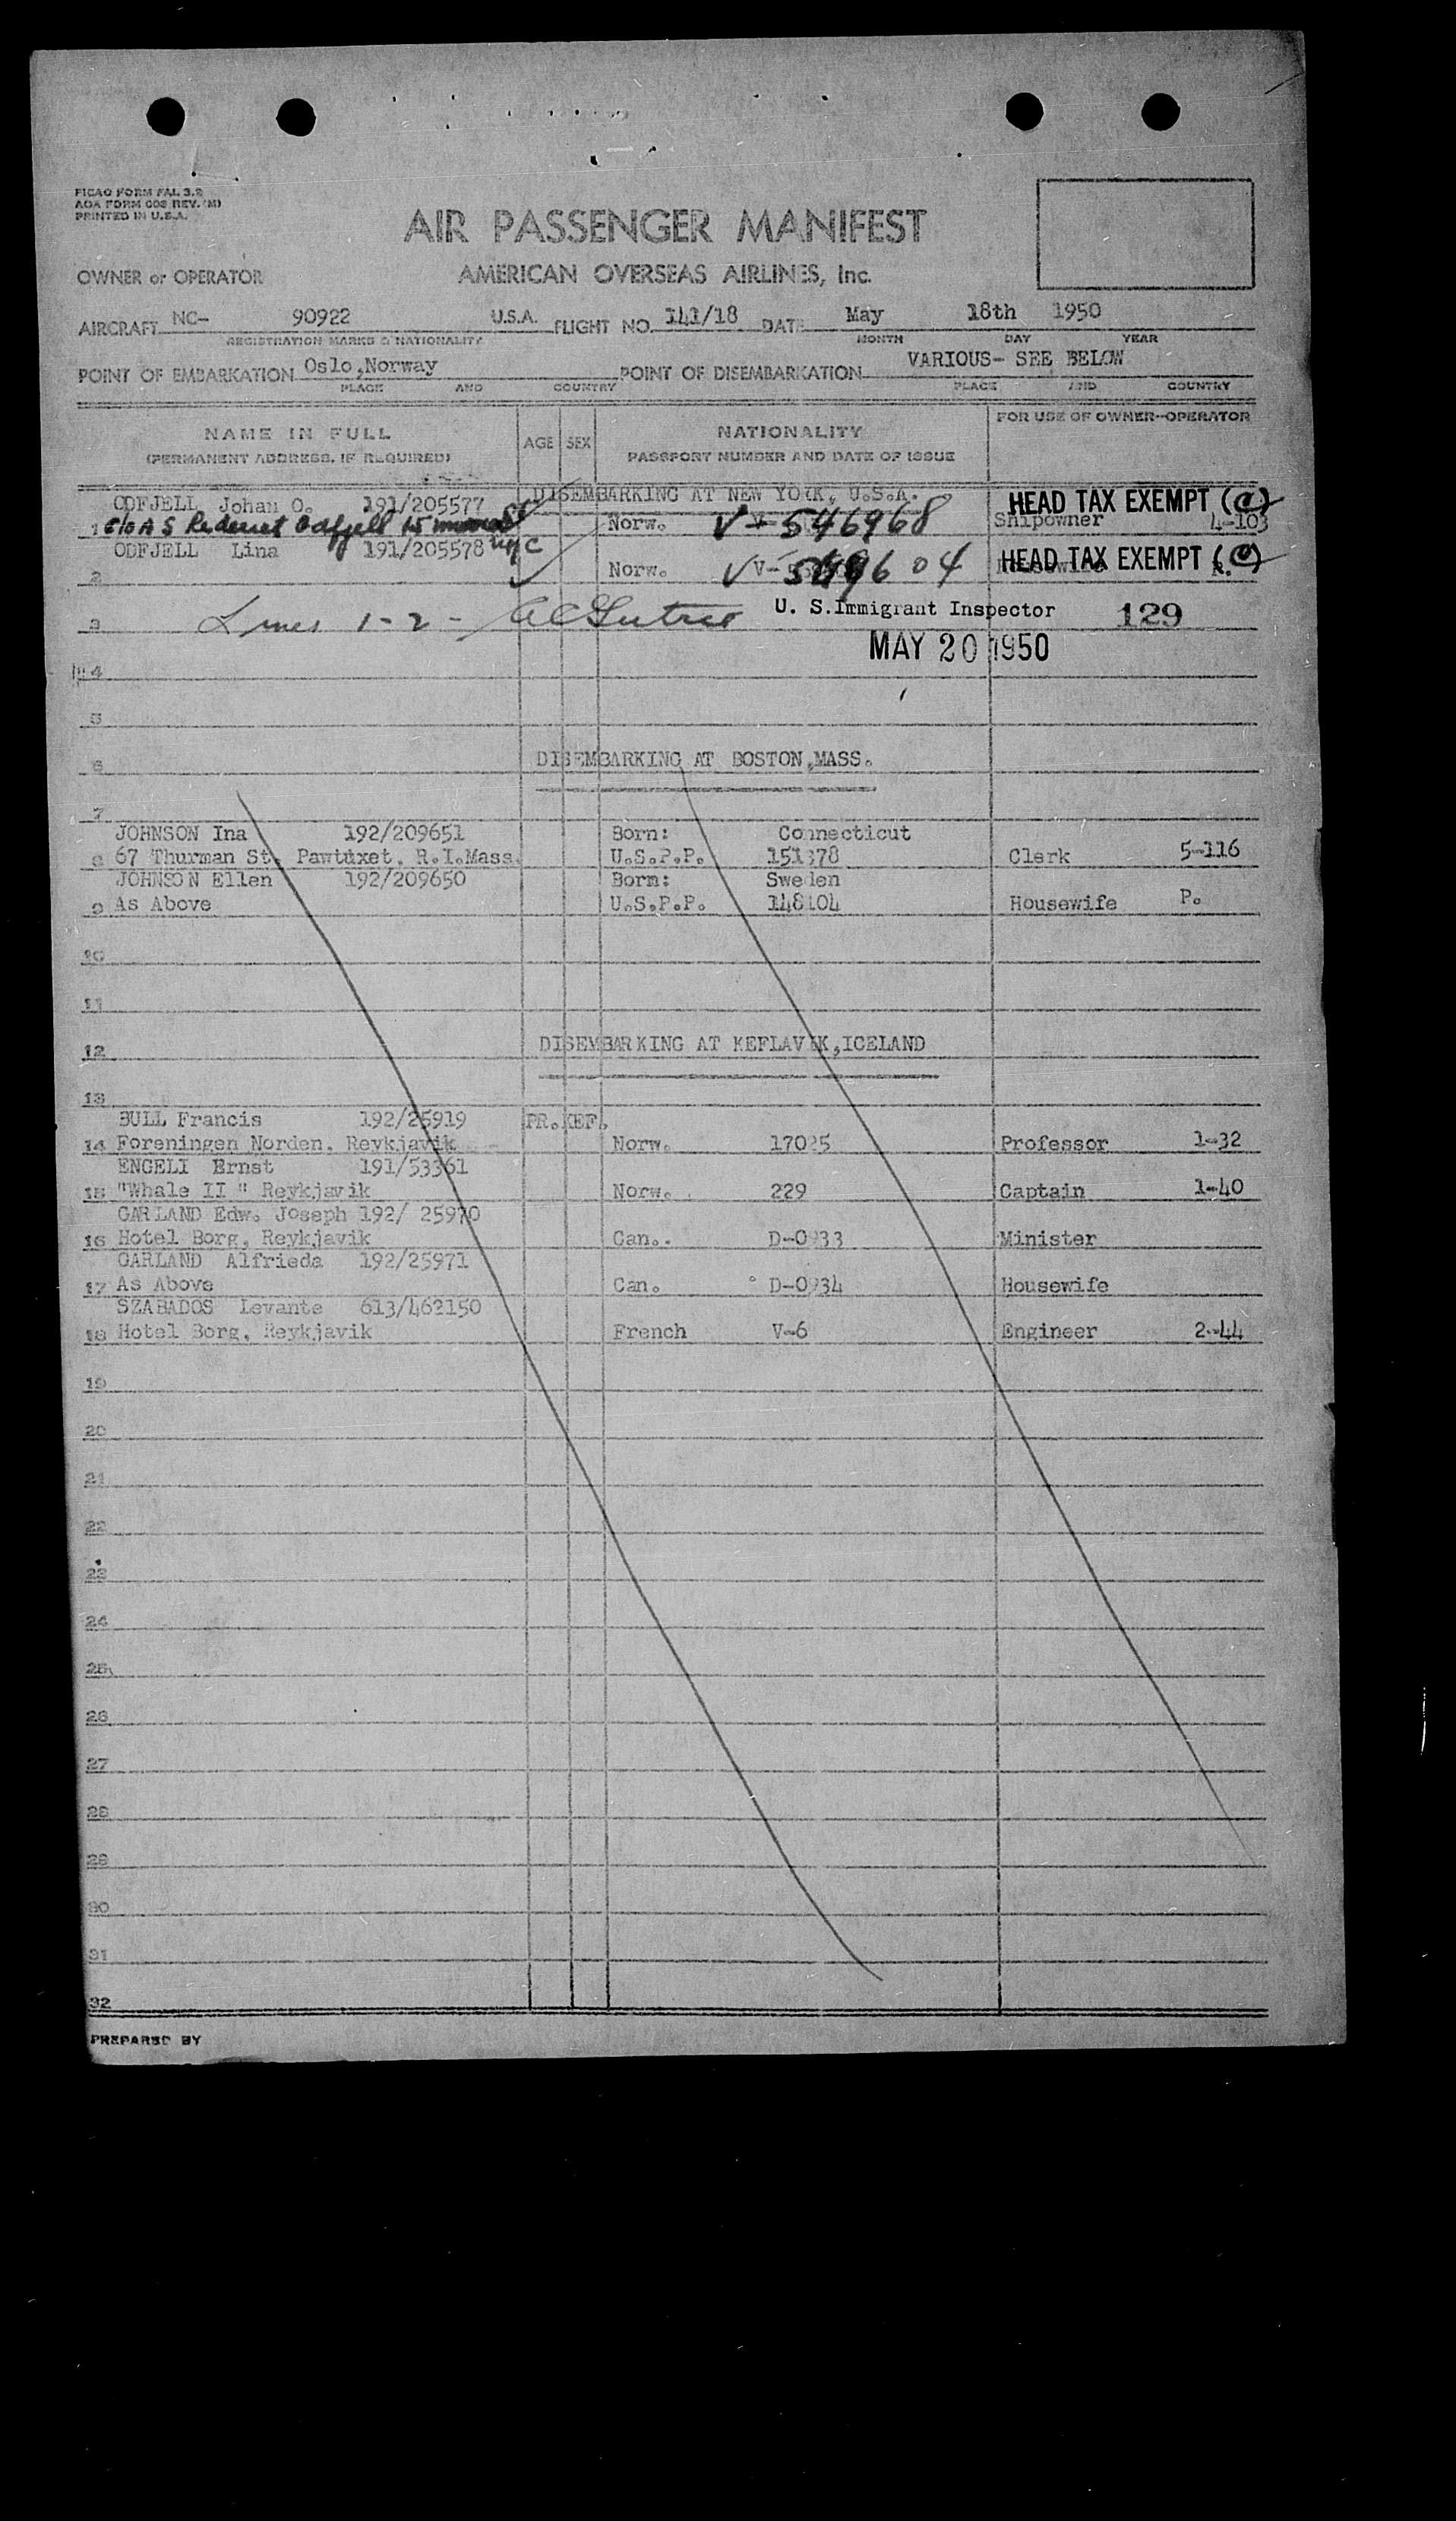 FICAO FORM FAL 3.2
AOA FORM 603 REV. (M)
PRINTED IN U.S.A.
AIR PASSENGER MANIFEST
OWNER or OPERATOR AMERICAN OVERSEAS AIRLINES, Inc.
AIRCRAFT NC- 90922 U.S.A. FLIGHT NO. 141/18 DATE May 18th 1950
REGISTRATION MARKS & NATIONALITY MONTH DAY YEAR
POINT OF EMBARKATION Oslo,Norway POINT OF DISEMBARKATION VARIOUS- SEE BELOW
PLACE AND COUNTRY PLACE AND COUNTRY
NAME IN FULL AGE SEX NATIONALITY FOR USE OF OWNER-OPERATOR
(PERMANENT ADDRESS, IF REQUIRED) PASSPORT NUMBER AND DATE OF ISSUE
DISEMBARKING AT NEW YORK, U.S.A.
ODFJELL Johan O. 191/205577 HEAD TAX EXEMPT (C)
1 c/o A S Rederiet Odfjell 15 St Norw. V-546968 Shipowner 4-103
ODFJELL Lina 191/205578 NYC HEAD TAX EXEMPT (C)
2 Norw. V-
3 Lines 1-2- U. S. Immigrant Inspector 129
MAY 20 1950
4
5
6 DISEMBARKING AT BOSTON,MASS.
7
JOHNSON Ina 192/209651 Born: Connecticut
8 67 Thurman St. Pawtuxet, R.I.Mass. U.S.P.P. 151378 Clerk 5-116
JOHNSON Ellen 192/209650 Born: Sweden
9 As Above U.S.P.P. 148104 Housewife P.
10
11
12 DISEMBARKING AT KEFLAVIK,ICELAND
13
BULL Francis 192/25919 PR. KEF.
14 Foreningen Norden, Reykjavik Norw. 17025 Professor 1-32
ENGELI Ernst 191/53361
15 "Whale II " Reykjavik Norw. 229 Captain 1-40
GARLAND Edw. Joseph 192/ 25970
16 Hotel Borg, Reykjavik Can. D-0933 Minister
GARLAND Alfrieda 192/25971
17 As Above Can. D-0934 Housewife
SZABADOS Levante 613/462150
18 Hotel Borg, Reykjavik French V-6 Engineer 2-44
19
20
21
22
23
24
25
26
27
28
29
30
31
32
PREPARED BY